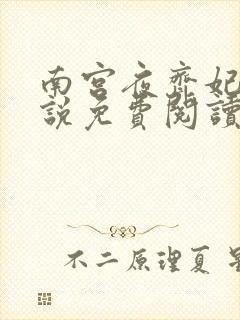 南宫夜齊妃
説免費閱讀
不二原理夏